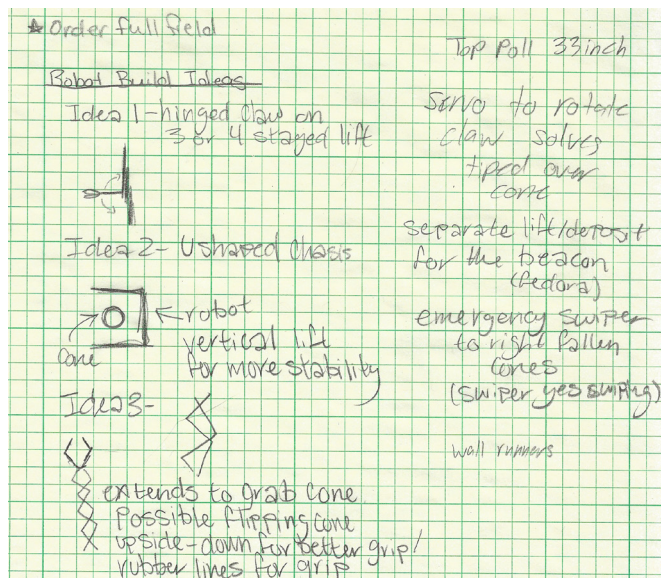 ★ Order full field
Robot Build Ideas
Idea 1-hinged claw on
3 or 4 staged lift
Idea 2- U shaped Chasis
robot
Cone
vertical lift
for more stability
Idea 3-
extends to grab cone
possible flipping cone
upside-down for better grip/
rubber lines for grip
Top Poll 33inch
Servo to rotate
claw solves
tiped over
cone
separate lift/deposit
for the beacon
(fedora)
emergency swiper
to right fallen
cones
(swiper yes swiping)
wall runners